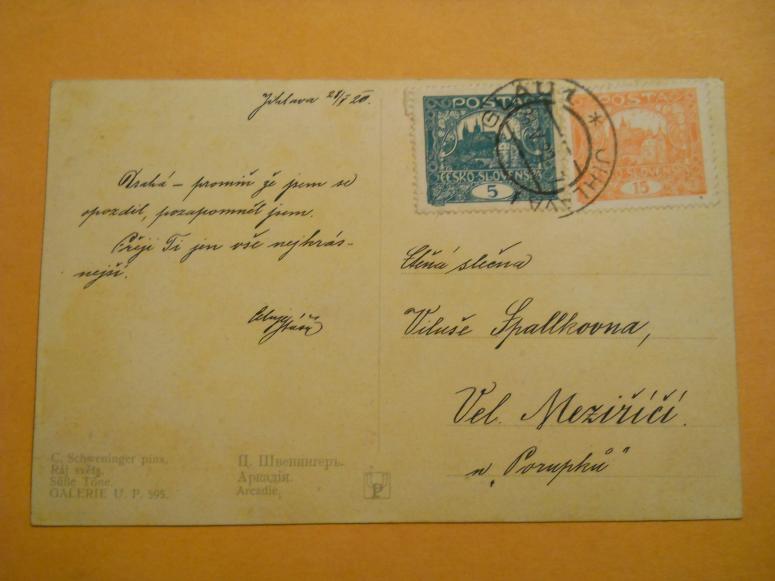 Jihlava 28/V 20.
Drahá – promiň že jsem se
opozdil, pozapomněl jsem.
Přeji Ti jen vše nejkrás-
nejší.
POSTA
ČESKO-SLOVENSKÁ
5
POSTA
ČESKO-SLOVENSKÁ
15
JIHLAVA
Ctěná slečna
Viluše Špallkovna,
Vel. Meziříčí.
C. Schweninger pinx.
Ráj světa.
Süße Töne.
GALERIE U. P. 595.
Ц. Швенингеръ.
Аркадія.
Arcadie.